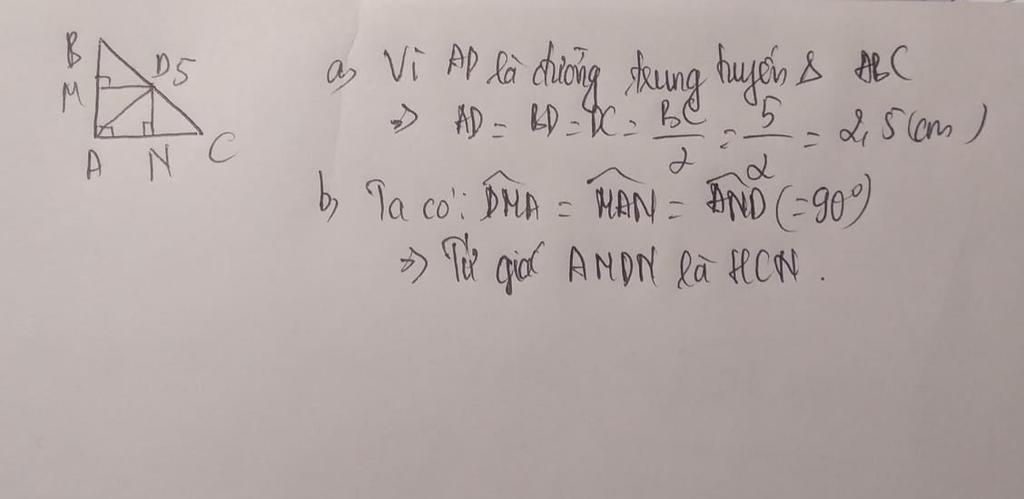 B
D 5
M
A
N
C
a) Vì AD là đường trung tuyến Δ ABC
=> AD = BD = DC = BC/2 = 5/2 = 2,5 (cm)
b) Ta có: DMA = MAN = AND (=90°)
=> Tứ giác AMDN là HCN.